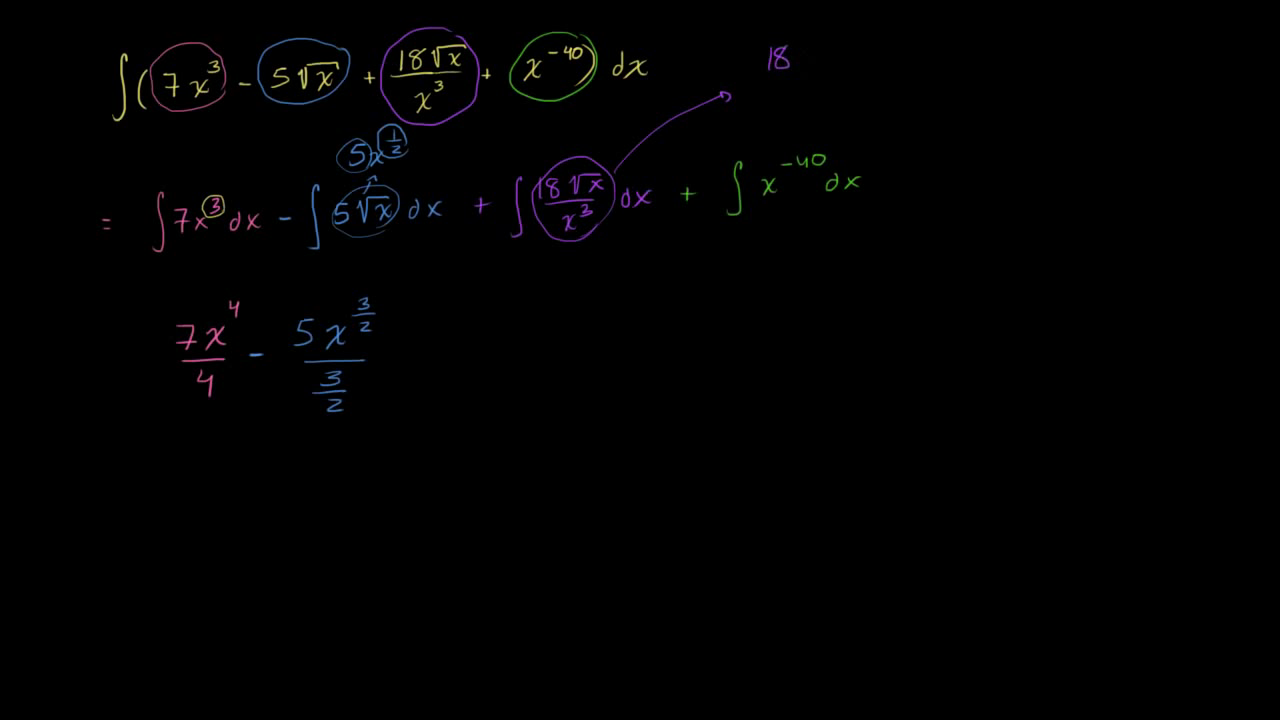 ∫(7x³ - 5√x + 18√x/x³ + x⁻⁴⁰) dx
18
5x^(1/2)
= ∫7x³dx - ∫5√x dx + ∫18√x/x³ dx + ∫x⁻⁴⁰dx
7x⁴/4 - 5x^(3/2)/(3/2)